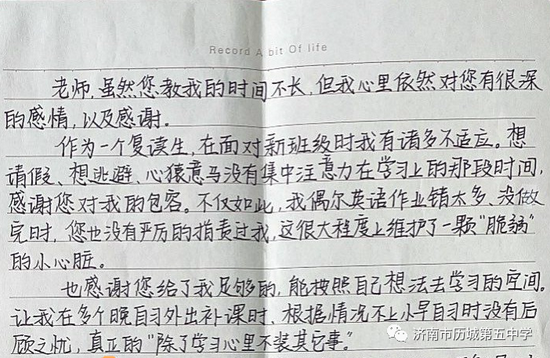 Record A bit Of life
老师,虽然您教我的时间不长,但我心里依然对您有很深
的感情,以及感谢.
作为一个复读生,在面对新班级时我有诸多不适应。想
请假、想逃避、心猿意马没有集中注意力在学习上的那段时间,
感谢您对我的包容。不仅如此,我偶尔英语作业错太多、没做
完时,您也没有严厉的指责过我,这很大程度上维护了一颗"脆弱"
的小心脏。
也感谢您给了我足够的,能按照自己想法去学习的空间。
让我在多个晚自习外出补课时、根据情况不上小早自习时没有后
顾之忧,真正的"除了学习心里不装其它事".
济南市历城第五中学